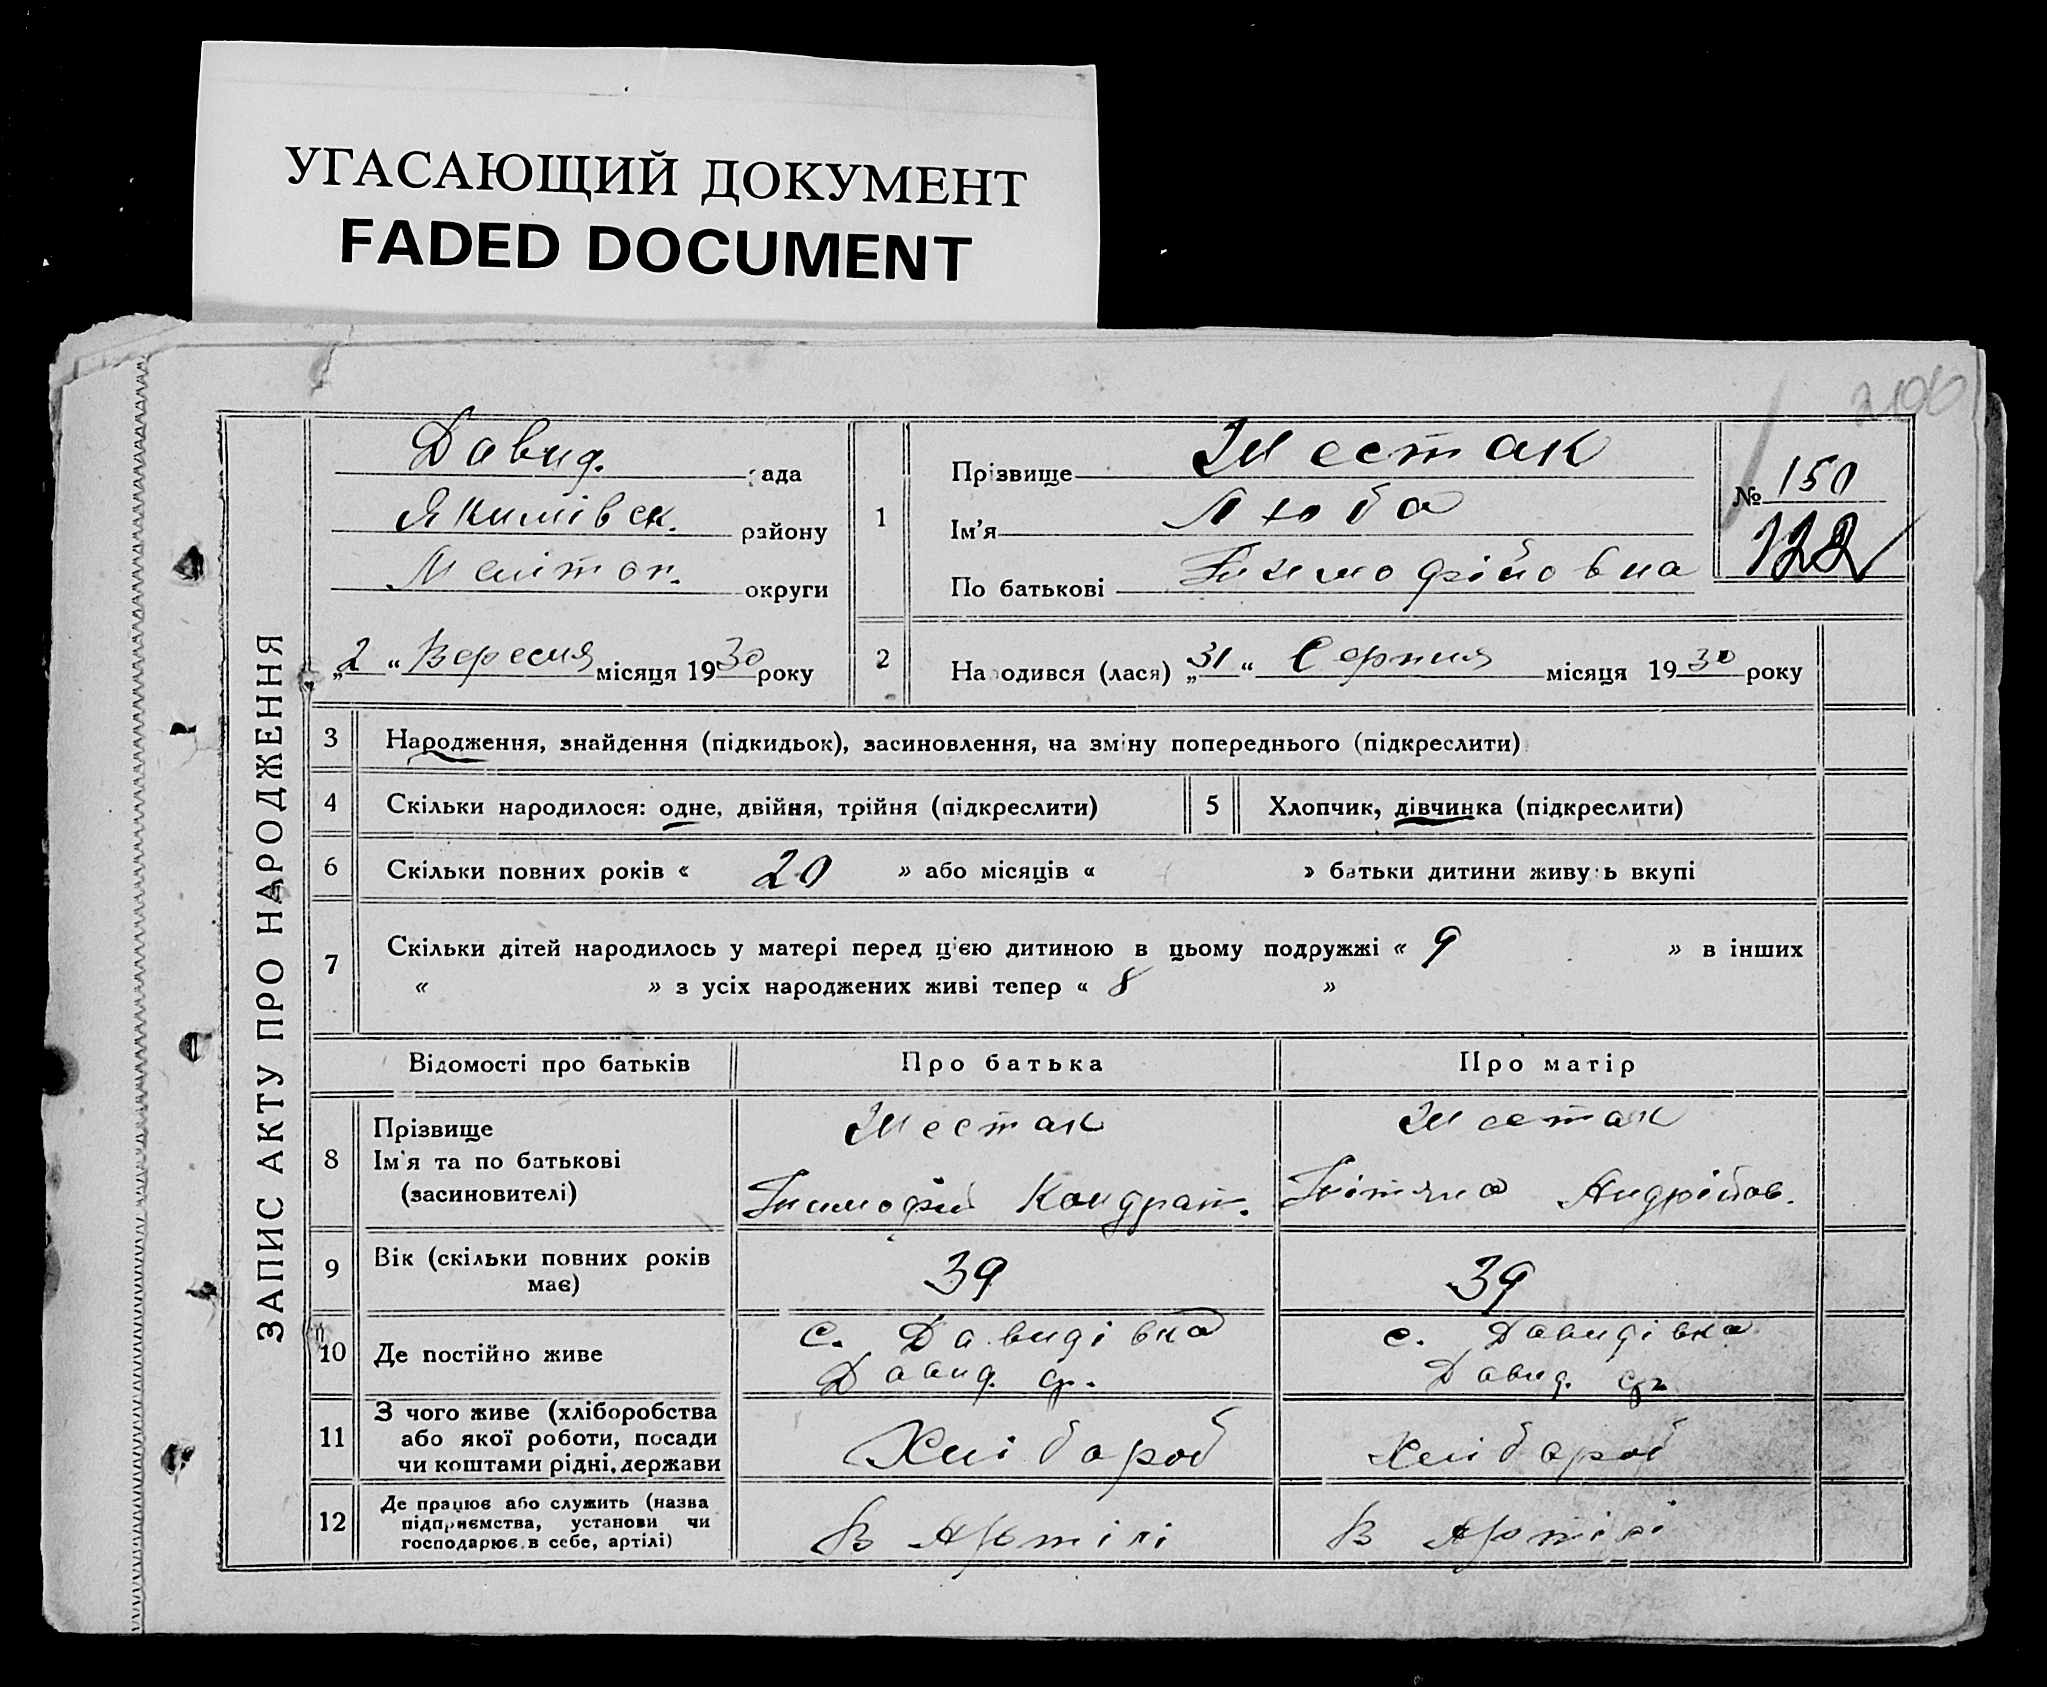 УГАСАЮЩИЙ ДОКУМЕНТ
FADED DOCUMENT
ЗАПИС АКТУ ПРО НАРОДЖЕННЯ
Давид. рада
Якимівськ. району
Меліток. округи
„2“ Вересня місяця 1930 року
1
Прізвище Шестак
Ім'я Люба
По батькові Тимофійовна
№ 150
122
2
Народився (лася) „31“ Серпня місяця 1930 року
3 Народження, знайдення (підкидьок), засиновлення, на зміну попереднього (підкреслити)
4 Скільки народилося: одне, двійня, трійня (підкреслити)
5 Хлопчик, дівчинка (підкреслити)
6 Скільки повних років « 20 » або місяців « » батьки дитини живуть вкупі
7 Скільки дітей народилось у матері перед цією дитиною в цьому подружжі « 9 » в інших
« » з усіх народжених живі тепер « 8 »
Відомості про батьків Про батька Про матір
8 Прізвище
Ім'я та по батькові
(засиновителі)
Шестак
Тимофій Кондрат.
Шестак
Тітяна Андрійов.
9 Вік (скільки повних років
має)
39
39
10 Де постійно живе
с. Давидівка
Давид. ср.
с. Давидівка
Давид. ср.
11 З чого живе (хліборобства
або якої роботи, посади
чи коштами рідні, держави
Хлібороб
Хлібороб
12 Де працює або служить (назва
підприємства, установи чи
господарює в себе, артілі)
В Артілі
В Артілі